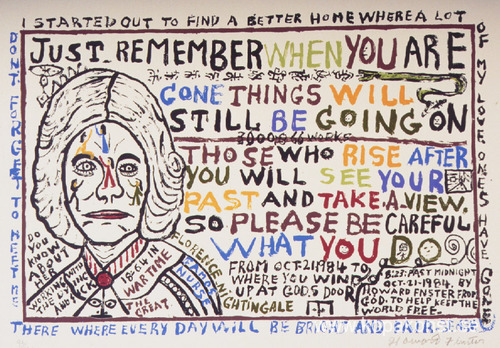 I STARTED OUT TO FIND A BETTER HOME WHERE A LOT
OF MY LOVE ONES HAVE GONE
DONT FORGET TO MEET ME
THERE WHERE EVERY DAY WILL BE BRIGHT AND FAIR
JUST REMEMBER WHEN YOU ARE
GONE THINGS WILL
STILL BE GOING ON
3000 WORKS
THOSE WHO RISE AFTER
YOU WILL SEE YOUR
PAST AND TAKE A VIEW.
SO PLEASE BE CAREFUL
WHAT YOU DO
FROM OCT-21-1984 TO
WHERE YOU WIND
UP AT GODS DOOR
8:23 PAST MIDNIGHT
OCT-21-1984. BY
HOWARD FNSTER FROM
GOD. TO HELP KEEP THE
WORLD FREE
DO
YOU
KNOW
ABOUT
HER
WORKING AMID
THE
AND
WARTIME
THE
GREAT
FLORENCE NIGHTINGALE
NURSE
Howard Finster